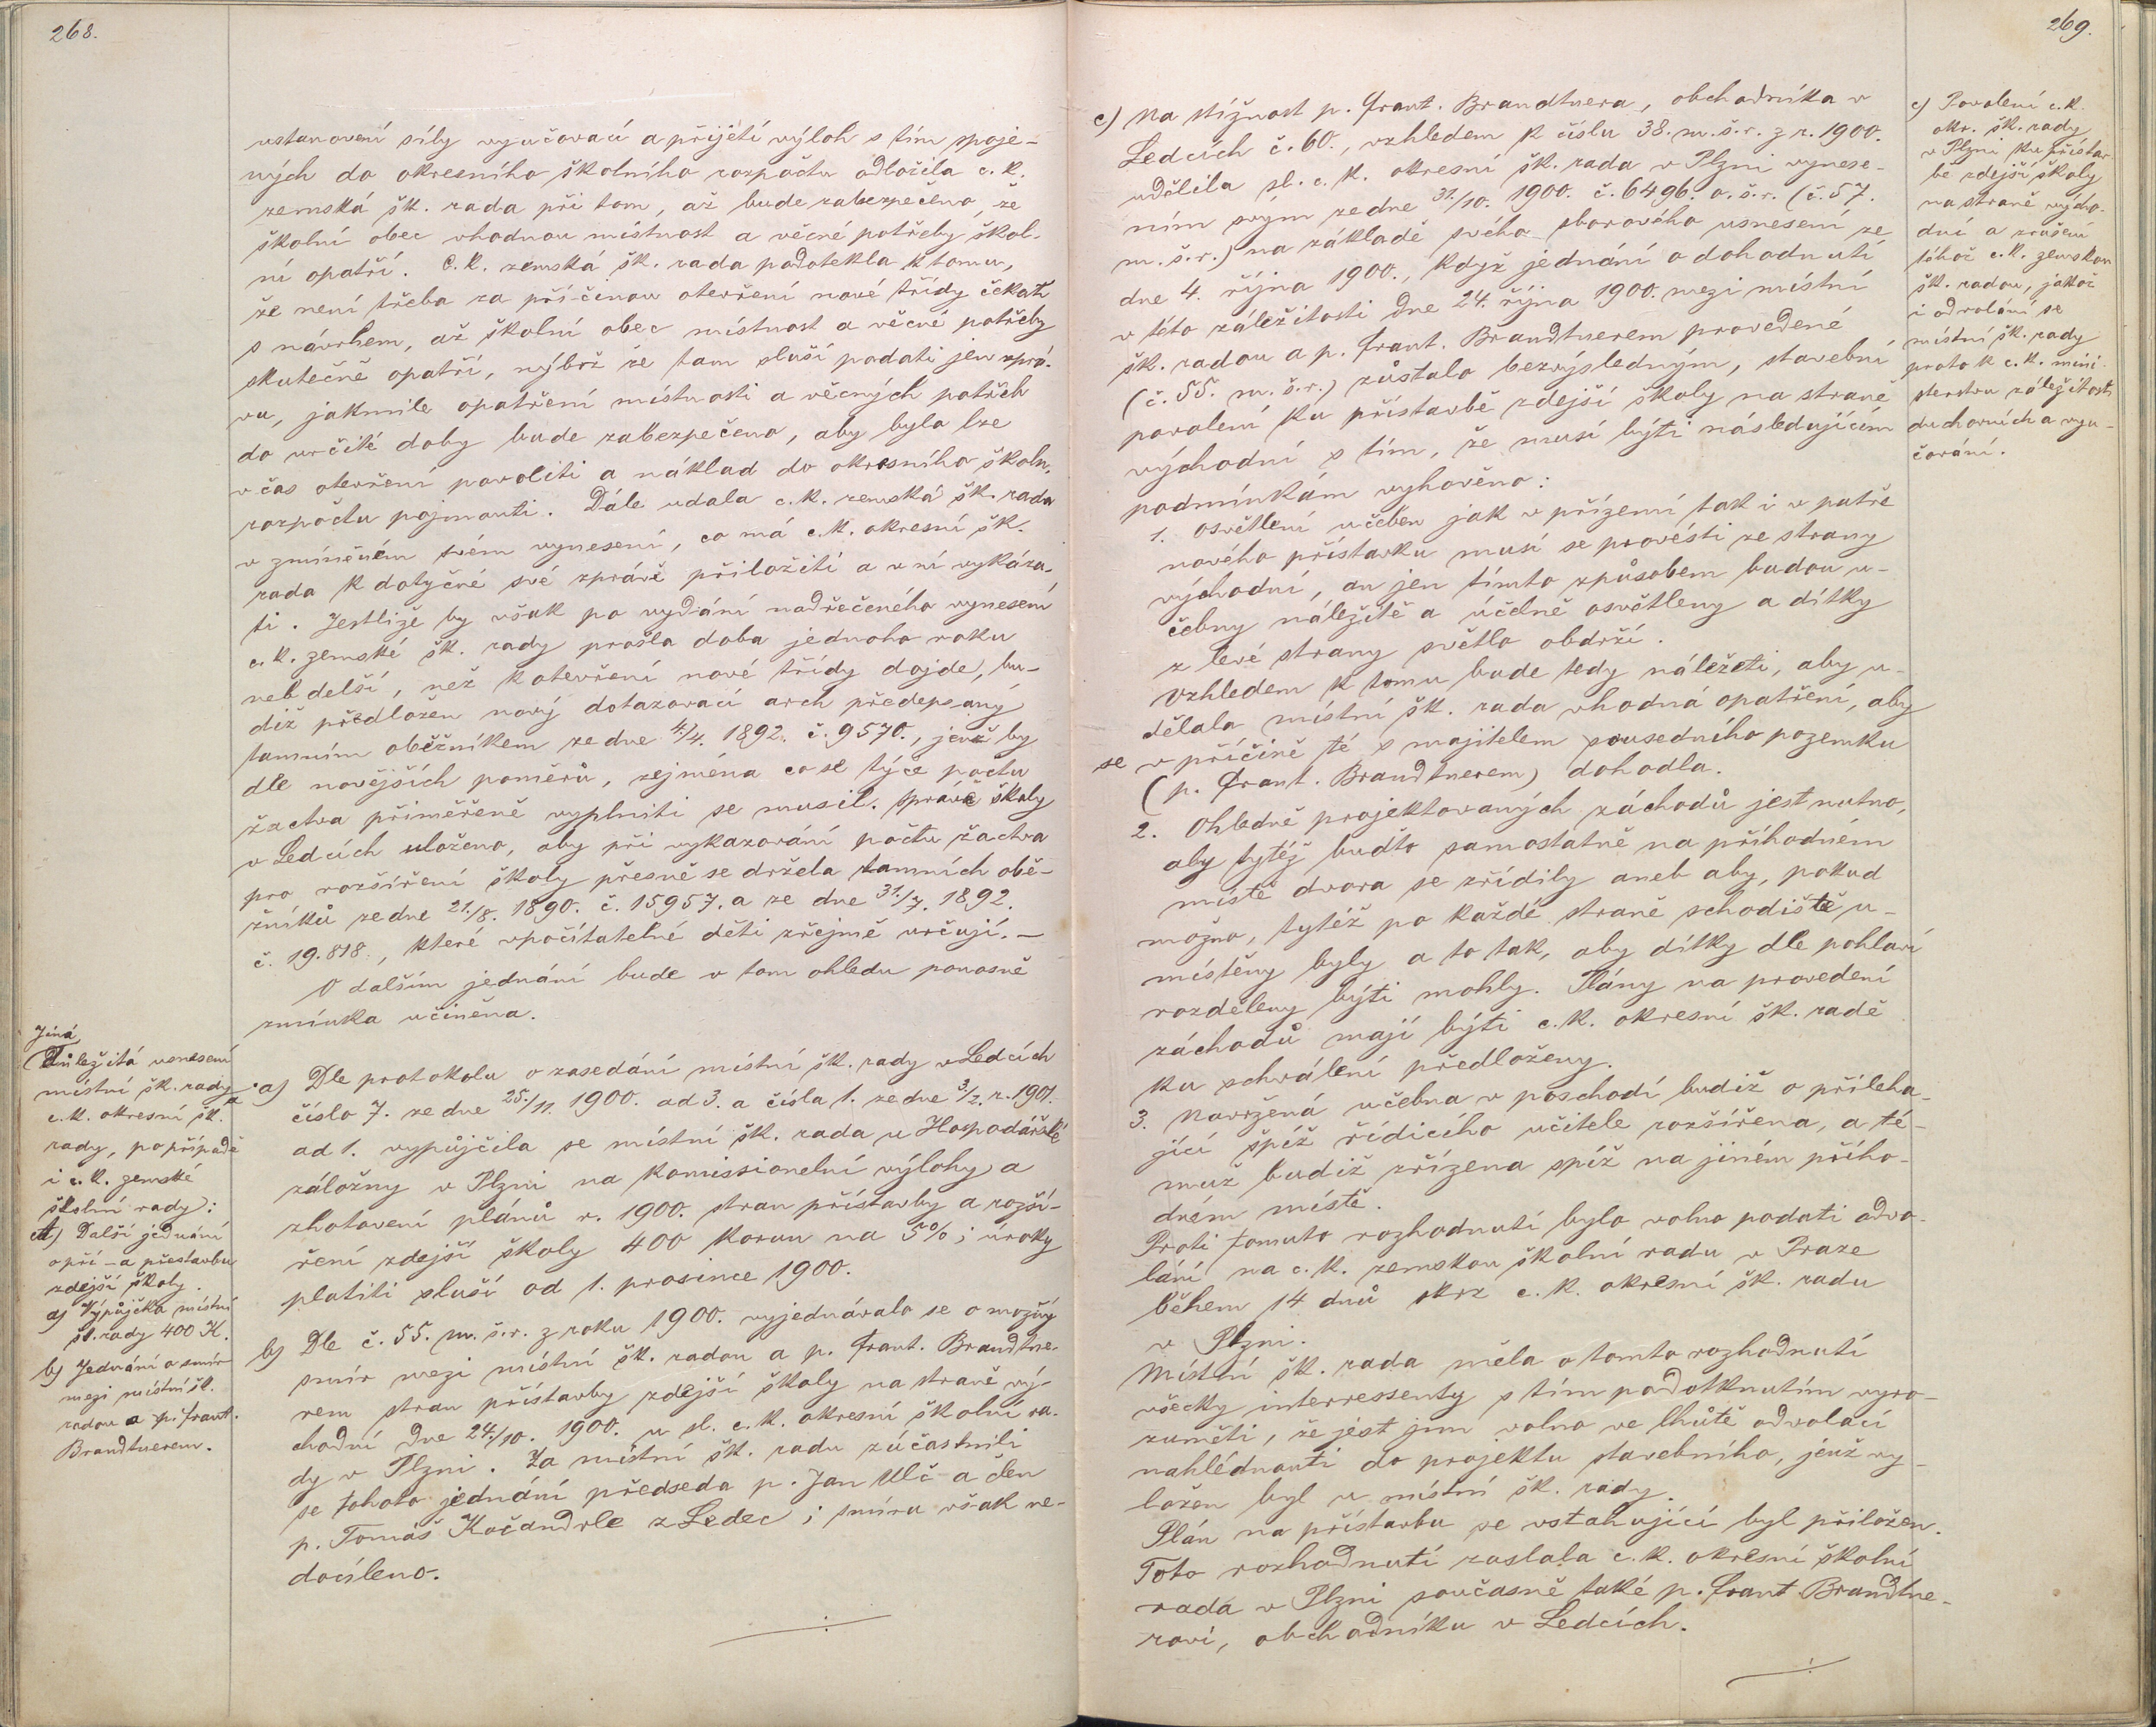 268.
ustanovení síly vyučovací a přijetí výloh s tím spoje-
ných do okresního školního rozpočtu odložila c. k.
zemská šk. rada při tom, až bude zabezpečeno, že
školní obec vhodnou místnost a věcné potřeby škol-
ní opatří. C. k. zemská šk. rada podotekla k tomu,
že není třeba za příčinou otevření nové třídy čekati
s návrhem, až školní obec místnost a věcné potřeby
skutečně opatří, nýbrž že tam sluší podati jen zprá-
vu, jakmile opatření místnosti a věcných potřeb
do určité doby bude zabezpečeno, aby bylo lze
v čas otevření povoliti a náklad do okresního školn.
rozpočtu pojmouti. Dále udala c. k. zemská šk. rada
v zmíněném svém vynesení, co má c. k. okresní šk.
rada k dotyčné své zprávě přiložiti a v ní vykáza-
ti. Jestliže by však po vydání nadřečeného vynesení
c. k. zemské šk. rady prošla doba jednoho roku
neb delší, než k otevření nové třídy dojde, bu-
diž předložen nový dotazovací arch předepsaný
tamním oběžníkem ze dne 4./4. 1892. č. 9570., jenž by
dle novějších poměrů, zejména co se týče počtu
žactva přiměřeně vyplniti se musil. Správě školy
v Ledcích uloženo, aby při vykazování počtu žactva
pro rozšíření školy přesně se držela tamních obě-
žníků ze dne 21./8. 1890. č. 15957. a ze dne 31./7. 1892.
č. 19.818., které vpočítatelné děti zřejmě určují. —
O dalším jednání bude v tom ohledu ponosně
zmínka učiněna.
Jiná
důležitá usnesení
místní šk. rady
c. k. okresní šk.
rady, po případě
i c. k. zemské
školní rady:
A) Další jednání
o pří- a přestavbu
zdejší školy.
a) Výpůjčka místní
šk. rady 400 K.
b) Jednání o smír
mezi místní šk.
radou a p. Frant.
Brandtnerem.
a) Dle protokolu o zasedání místní šk. rady v Ledcích
číslo 7. ze dne 25./11. 1900. ad 3. a čísla 1. ze dne 3/2. r. 1901.
ad 1. vypůjčila se místní šk. rada u Hospodářské
záložny v Plzni na komissionelní výlohy a
zhotovení plánů r. 1900. stran přístavby a rozší-
ření zdejší školy 400 korun na 5%; úroky
platiti sluší od 1. prosince 1900.
b) Dle č. 55. m. š. r. z roku 1900. vyjednávalo se o možný
smír mezi místní šk. radou a p. Frant. Brandtne-
rem stran přístavby zdejší školy na straně vý-
chodní dne 24./10. 1900. u sl. c. k. okresní školní ra-
dy v Plzni. Za místní šk. radu zúčastnili
se tohoto jednání předseda p. Jan Ulč a člen
p. Tomáš Kočandrle z Ledec; smíru však ne-
docíleno.
269.
c) Na stížnost p. Frant. Brandtnera, obchodníka v
Ledcích č. 60., vzhledem k číslu 38. m. š. r. z r. 1900.
udělila sl. c. k. okresní šk. rada v Plzni vynese-
ním svým ze dne 31./10. 1900. č. 6496. o. š. r. (č. 57.
m. š. r.) na základě svého sborového usnesení ze
dne 4. října 1900., když jednání o dohodnutí
v této záležitosti dne 24. října 1900. mezi místní
šk. radou a p. Frant. Brandtnerem provedené
(č. 55. m. š. r.) zůstalo bezvýsledným, stavební
povolení ku přístavbě zdejší školy na straně
východní s tím, že musí býti následujícím
podmínkám vyhověno:
1. Osvětlení učeben jak v přízemí tak i v patře
nového přístavku musí se provésti ze strany
východní, an jen tímto způsobem budou u-
čebny náležitě a účelně osvětleny a dítky
z levé strany světlo obdrží.
Vzhledem k tomu bude tedy náležeti, aby u-
dělala místní šk. rada vhodná opatření, aby
se v příčině té s majitelem sousedního pozemku
(p. Frant. Brandtnerem) dohodla.
2. Ohledně projektovaných záchodů jest nutno,
aby tytéž buďto samostatně na příhodném
místě dvora se zřídily aneb aby, pokud
možno, tytéž po každé straně schodiště u-
místěny byly a to tak, aby dítky dle pohlaví
rozděleny býti mohly. Plány na provedení
záchodů mají býti c. k. okresní šk. radě
ku schválení předloženy.
3. Navržená učebna v poschodí budiž o přileha-
jící spíž řídicího učitele rozšířena, a té-
muž budiž zřízena spíž na jiném přího-
dném místě.
Proti tomuto rozhodnutí bylo volno podati odvo-
lání na c. k. zemskou školní radu v Praze
během 14 dnů skrz c. k. okresní šk. radu
v Plzni.
Místní šk. rada měla o tomto rozhodnutí
všecky interressenty s tím podotknutím vyro-
zuměti, že jest jim volno ve lhůtě odvolací
nahlédnouti do projektu stavebního, jenž vy-
ložen byl u místní šk. rady.
Plán na přístavbu se vztahující byl přiložen.
Toto rozhodnutí zaslala c. k. okresní školní
rada v Plzni současně také p. Frant. Brandtne-
rovi, obchodníku v Ledcích.
c) Povolení c. k.
okr. šk. rady
v Plzni ku přístav-
bě zdejší školy
na straně výcho-
dní a zrušení
téhož c. k. zemskou
šk. radou, jakož
i odvolání se
místní šk. rady
proto k c. k. mini-
sterstvu záležitostí
duchovních a vyu-
čování.